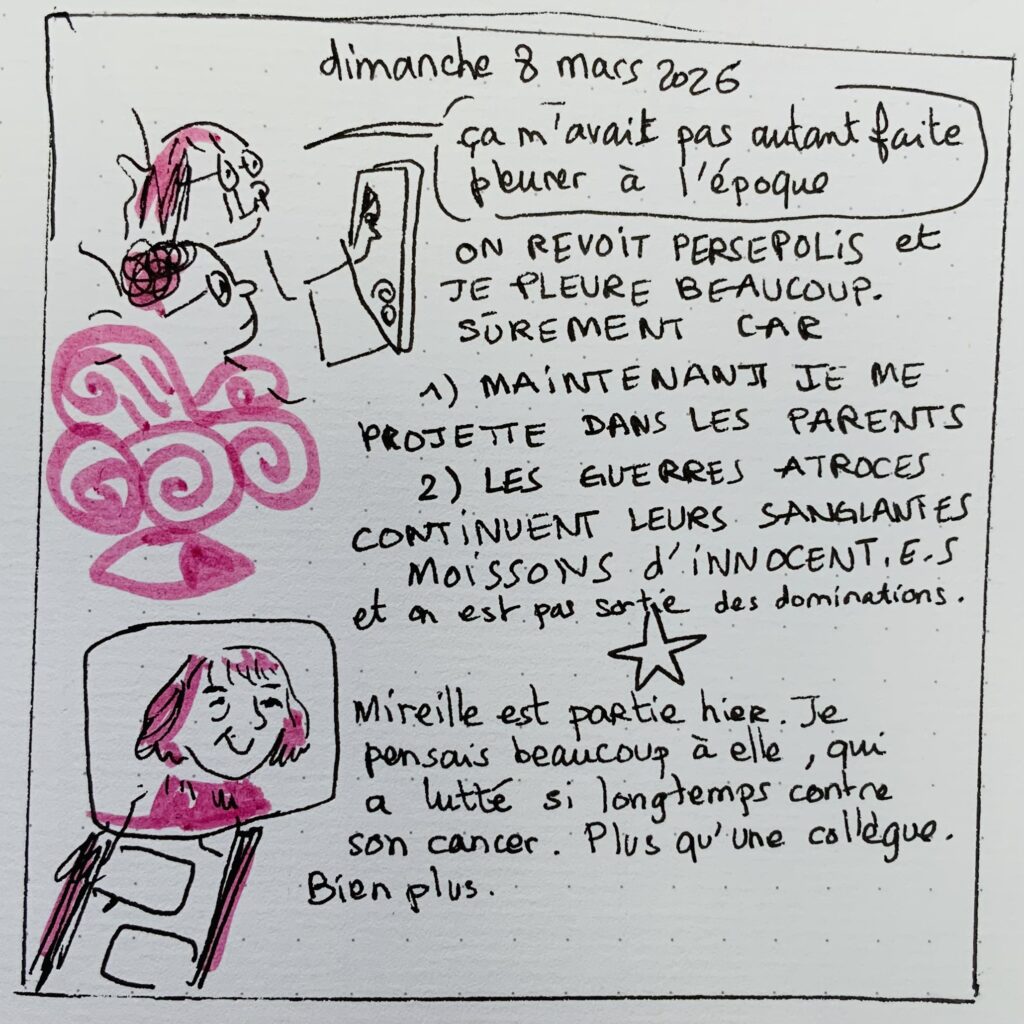 dimanche 8 mars 2026
ça m'avait pas autant faite
pleurer à l'époque
ON REVOIT PERSEPOLIS et
JE PLEURE BEAUCOUP.
SÛREMENT CAR
1) MAINTENANT JE ME
PROJETTE DANS LES PARENTS
2) LES GUERRES ATROCES
CONTINUENT LEURS SANGLANTES
MOISSONS d'INNOCENT.E.S
et on est pas sortie des dominations.
Mireille est partie hier. Je
pensais beaucoup à elle, qui
a lutté si longtemps contre
son cancer. Plus qu'une collègue.
Bien plus.